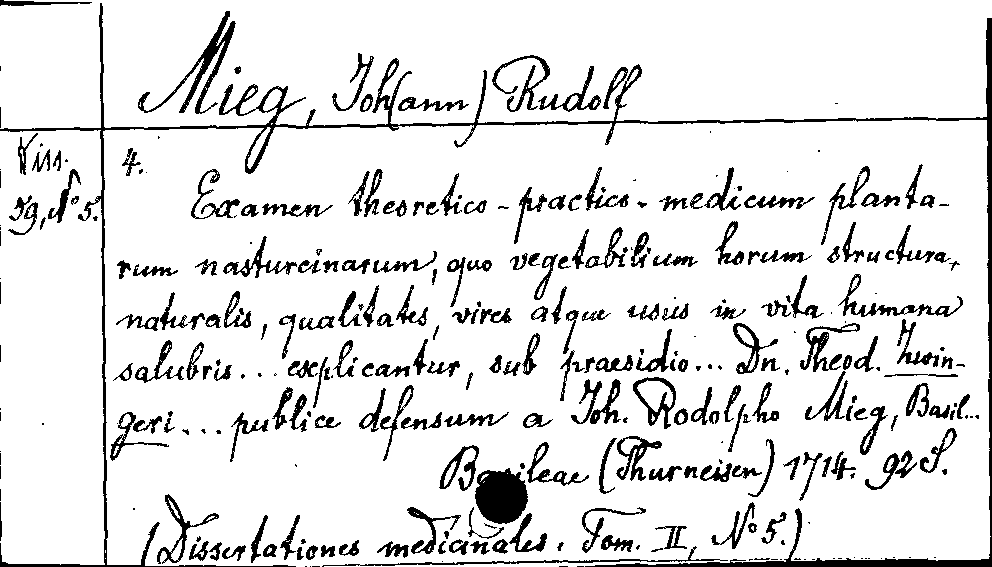 Mieg, Joh(ann) Rudolf
Diss.
59, No 5.
4.
Examen theoretico-practico-medicum planta-
rum nasturcinarum, quo vegetabilium horum structura,
naturalis, qualitates, vires atque usus in vita humana
salubris... explicantur, sub praesidio... Dn. Theod. Zwin-
geri... publice defensum a Joh. Rodolpho Mieg, Basil...
Basileae (Thurneisen) 1714. 92 S.
(Dissertationes medicinales. Tom. II, No 5.)